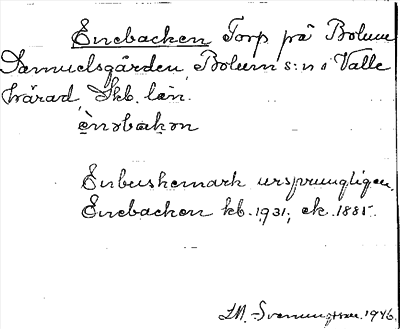 Enebacken Torp på Bolum
Samuelsgården, Bolum s:n i Valle
härad, Skb. län.
ènəbakən
Enbuskemark ursprungligen.
Enebacken kb. 1931; ek. 1885.
1946.